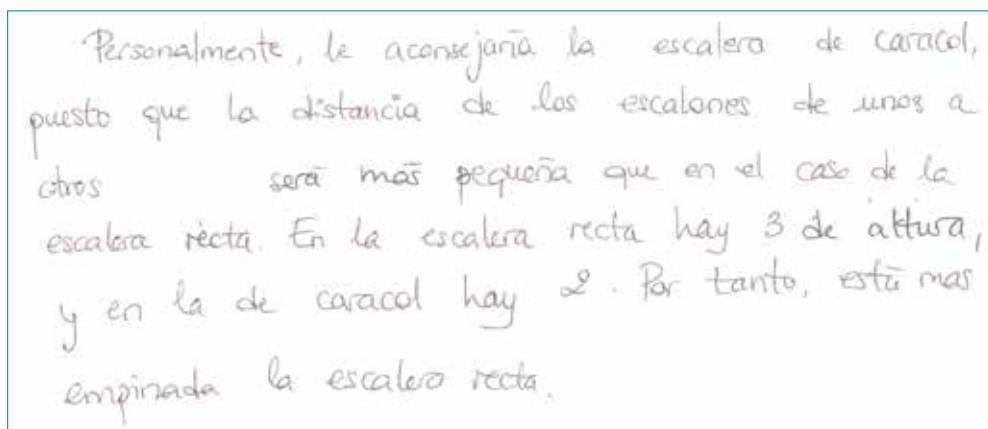 Personalmente, le aconsejaría la escalera de caracol,
puesto que la distancia de los escalones de unos a
otros será más pequeña que en el caso de la
escalera recta. En la escalera recta hay 3 de altura,
y en la de caracol hay 2. Por tanto, está mas
empinada la escalera recta.